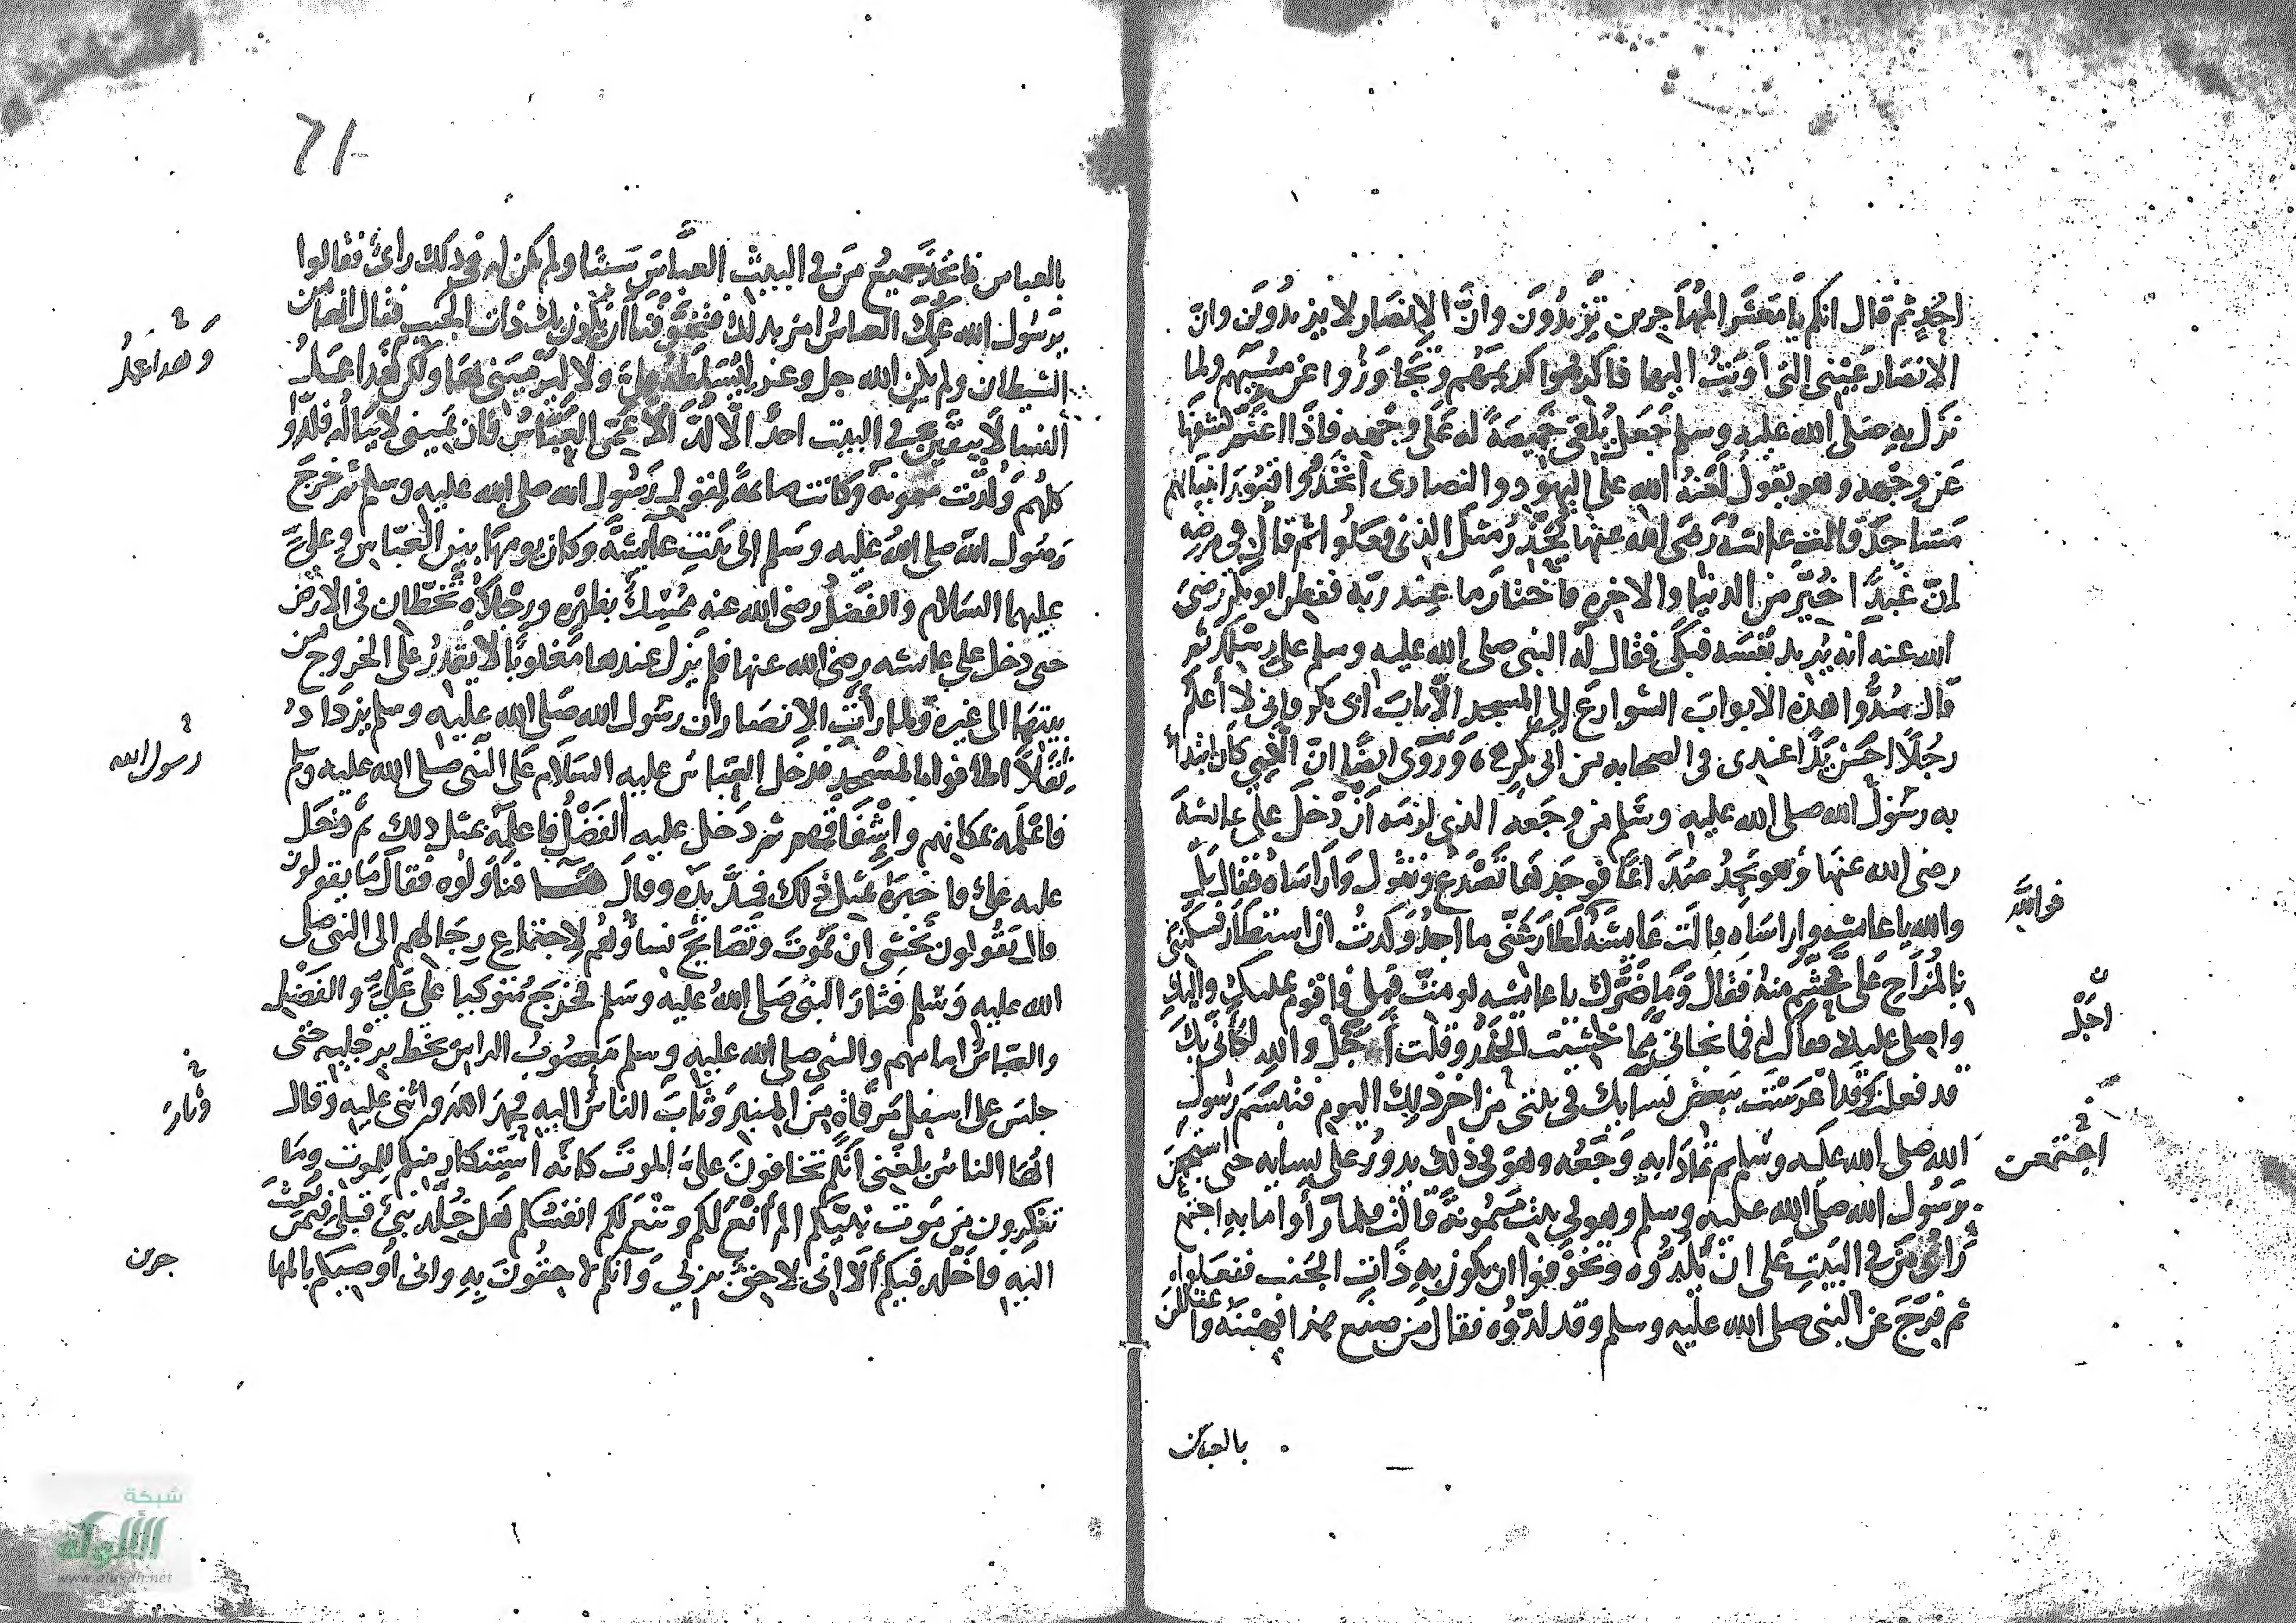 احد ثم قال انكم يا معشر المهاجرين تزيدون وان الانصار لا يزيدون وان
الانصار عيبتى التى اويت اليها فاكرموا كريمهم وتجاوزوا عن مسيهم ولما
نزل به صلى الله عليه وسلم جعل يلقى خميصة له على وجهه فاذا اغتم كشفها
عن وجهه وهو يقول لعنة الله على اليهود والنصارى اتخذوا قبور انبيائهم
مساجد قالت عائشه رضى الله عنها يحذر مثل الذى فعلوا ثم قال فى مرضه
ان عبدا خير من الدنيا والاخره فاختار ما عند ربه ففطن ابو بكر رضى
الله عنه انه يريد نفسه فبكى فقال له النبى صلى الله عليه وسلم على رسلك ثم
قال سدوا هذه الابواب الشوارع الى المسجد الا باب ابى بكر فانى لا أعلم
رجلا احسن يدا عندى فى الصحابه من ابى بكر وروى ايضا ان الذى كان ابتدأ
به رسول الله صلى الله عليه وسلم من وجعه الذى لزمه أن دخل على عائشة
رضى الله عنها وهو يجد صداعا فوجدها تصدع وتقول واراساه فقال بل
والله يا عائشه واراساه قالت عايشة لطار عنى ما اجد وكدت ان استطار فسكننى
فوالله
بالمزاح على تجشم منه فقال وما ضرك يا عايشه لو مت قبلى فاقوم عليك واليك
واصلى عليك فقال لى فما نحانى مما خشيت الحذر وقلت أجل والله لكأنى بك
اجل
قد فعلت وقد اعرست ببعض نسايك فى بيتى من اخر ذلك اليوم فتبسم رسول
الله صلى الله عليه وسلم ثم تمادا به وجعه وهو فى ذلك يدور على نسايه حتى استجمعن
اجتمعن
برسول الله صلى الله عليه وسلم وهو فى بيت ميمونة قالت فلما رأوا ما به اجتمع
رأى من فى البيت على ان يلدوه وتخوفوا ان يكون به ذات الجنب ففعلوا
ثم فرج عن النبى صلى الله عليه وسلم وقد لدوه فقال من صنع هذا فهبنه واعتللن
بالعباس
61
بالعباس فاتخذ جميع من فى البيت العباس سببا ولم يكن له فى ذلك رأى فقالوا
يرسول الله عمك العباس امر بذلك وتخوفنا ان يكون بك ذات الجنب فقال انها من
الشيطان ولم يكن الله جل وعز ليسلطه على ولا ليرمينى بها ولكن هذا عمل
وهذا عمل
النسا لا يبقين فى البيت احد الا لد الا عمى العباس فان يمينى لا يناله فلدوا
كلهم ولدت ميمونه وكانت صائمة لقول رسول الله صلى الله عليه وسلم ثم خرج
رسول الله صلى الله عليه وسلم الى بيت عايشة وكان يومها بين العباس وعلى
عليهما السلام والفضل رضى الله عنه ممسك بظهره ورجلاه تخطان فى الارض
حتى دخل على عائشه رضى الله عنها فلم يزل عندها مغلوبا لا يقدر على الخروج من
بيتها الى غيره ولما رأت الانصار ان رسول الله صلى الله عليه وسلم يزداد
رسول الله
ثقلا اطافوا بالمسجد فدخل العباس عليه السلام على النبى صلى الله عليه وسلم
فاعلمه بمكانهم واشفاقهم ثم دخل عليه الفضل فاعلمه بمثل ذلك ثم دخل
عليه على فاخبره بمثل ذلك فمد يده وقال ها فتناولوه فقال ما يقولون
قال يقولون نخشى ان تموت وتصايح نساؤهم لاجتماع رجالهم الى النبى صلى
الله عليه وسلم فثار النبى صلى الله عليه وسلم فخرج متوكيا على على والفضل
والعباس امامهم والنبى صلى الله عليه وسلم معصوب الراس يخط برجليه حتى
جلس على اسفل مرقاة من المنبر وثاب الناس اليه فحمد الله واثنى عليه وقال
وثار
ايها الناس بلغنى انكم تخافون على الموت كانه استنكار منكم للموت وما
تنكرون من موت نبيكم الم أنع لكم وتنع لكم انفسكم هل خلد نبى قبلى فيمن بعث
اليه فاخلد فيكم ألا انى لاحق بربى وانكم لاحقون به وانى أوصيكم بالمها
جرين
شبكة
الألوكة
www.alukah.net